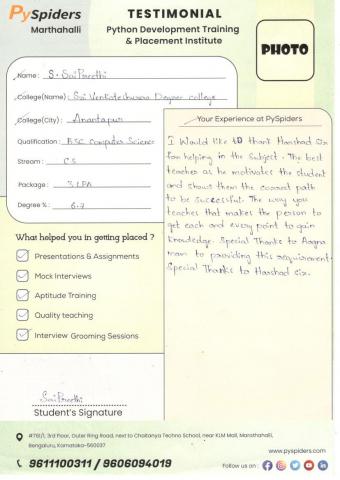 PySpiders
Marthahalli
TESTIMONIAL
Python Development Training
& Placement Institute
PHOTO
Name : S. Sai Preethi
College(Name) : Sri Venkateshwara Degree college
College(City) : Anantapur
Qualification : BSC Computer Science
Stream : CS
Package : 3 LPA
Degree % : 6.7
Your Experience at PySpiders
I Would like to thank Harshad Sir
for helping in the Subject. The best
teacher as he motivates the student
and shows them the correct path
to be successful. The way you
teaches that makes the person to
get each and every point to gain
knowledge. Special Thanks to
mam to providing this requirement.
Special Thanks to Harshad sir.
What helped you in getting placed ?
Presentations & Assignments
Mock Interviews
Aptitude Training
Quality teaching
Interview Grooming Sessions
Sai Preethi
Student's Signature
#761/1, 3rd Floor, Outer Ring Road, next to Chaitanya Techno School, near KLM Mall, Marathahalli,
Bengaluru, Karnataka-560037
www.pyspiders.com
9611100311 / 9606094019
Follow us on :